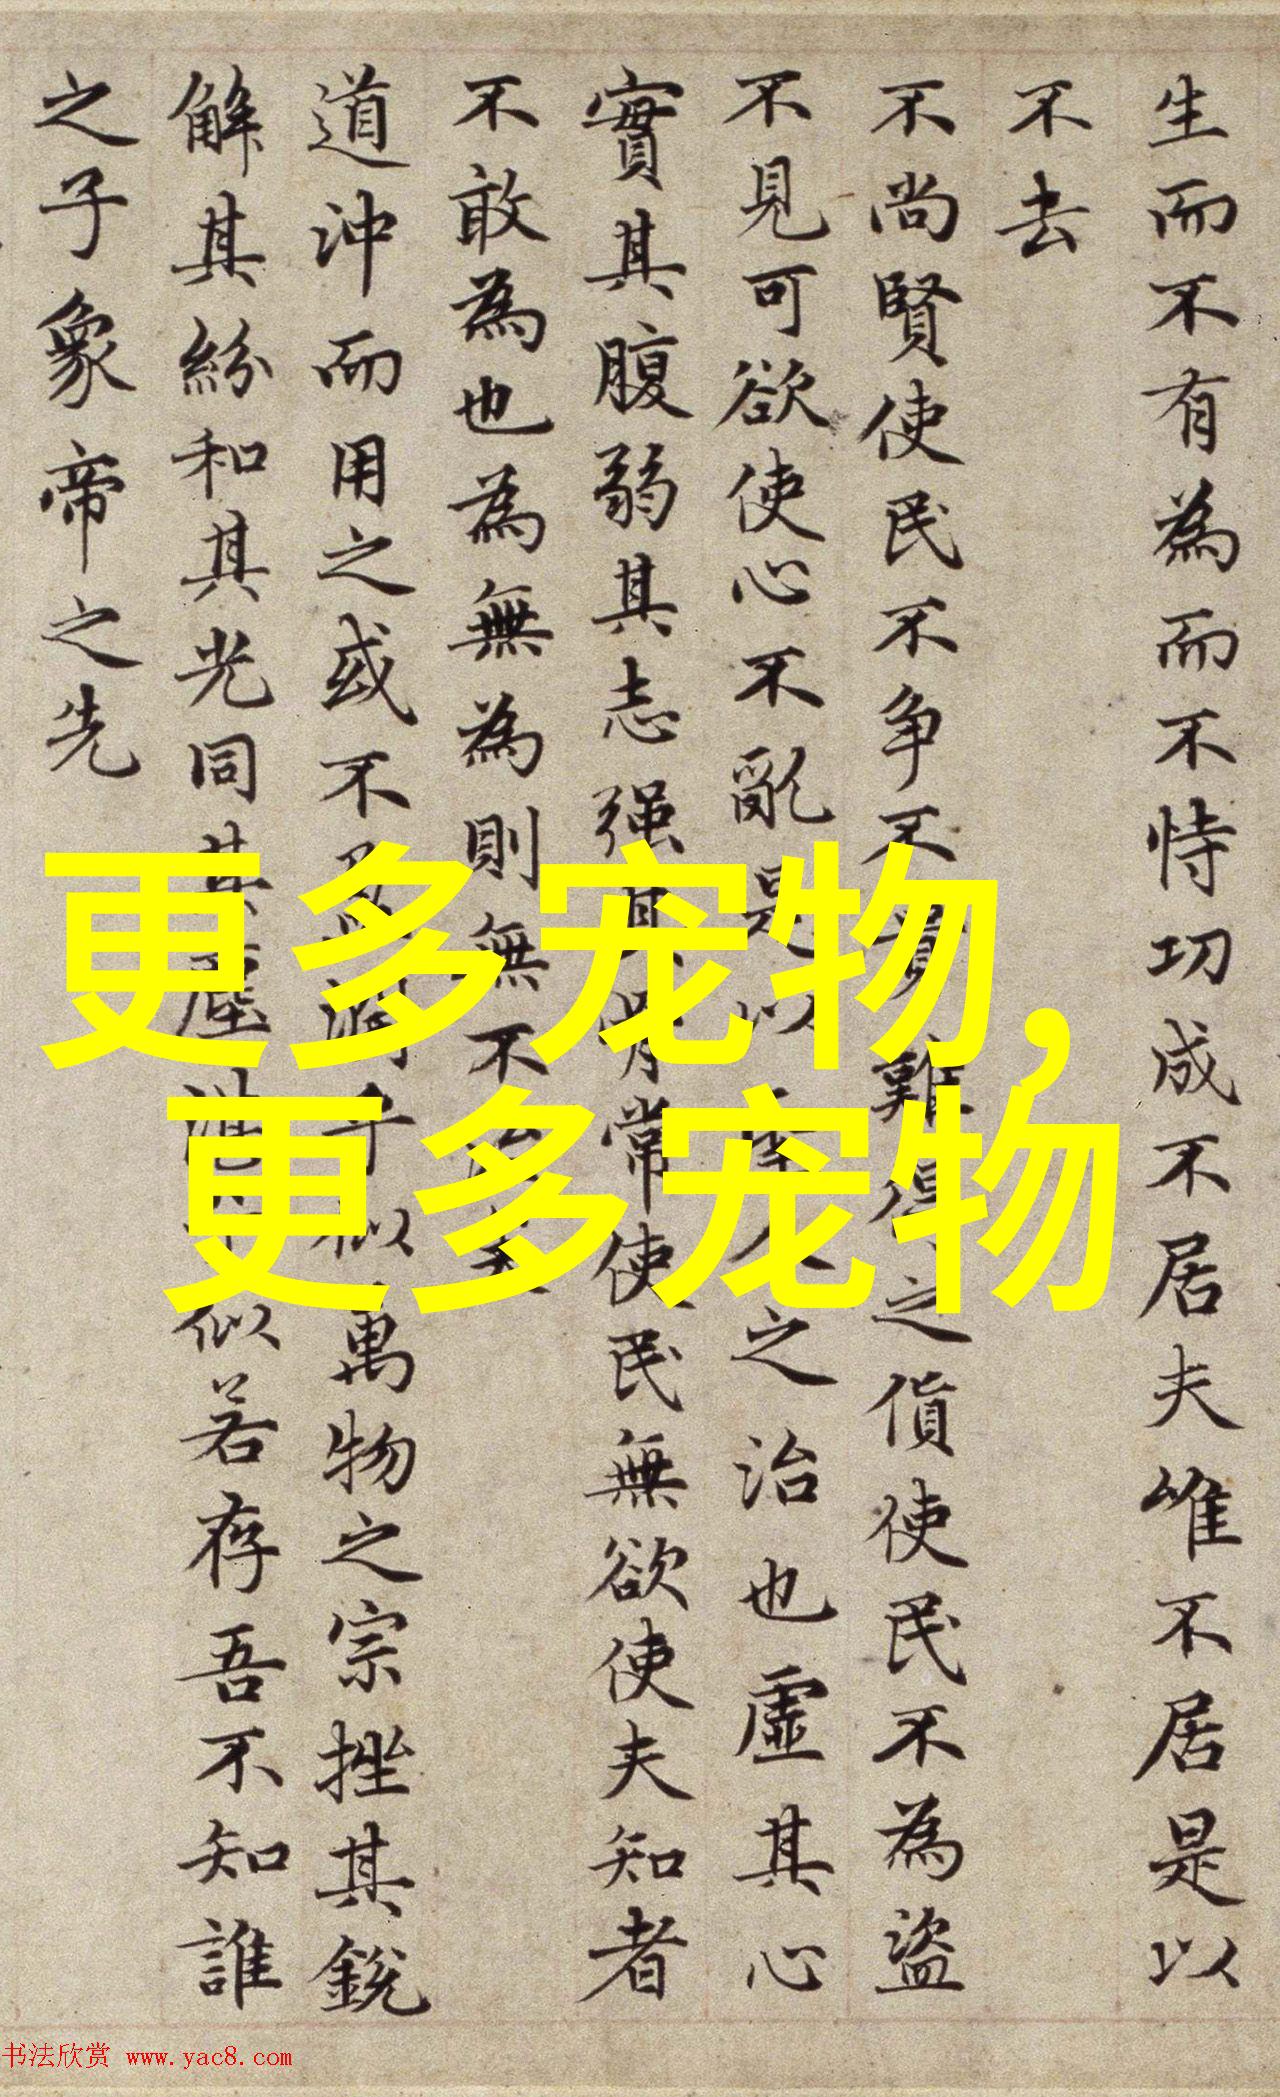 生而不有為而不恃功成不居夫唯不居是以
不去
不尚賢使民不争不貴難得之貨使民不為盜
不見可欲使心不亂是以之治也虛其心
實其腹弱其志强其常使民無欲使夫知者
不敢為也為無為則無不
道沖而用之或不乎似萬物之宗挫其銳
解其紛和其光同其塵似若存吾不知誰
之子象帝之先
更多宠物,
更多宠物
书法欣赏 www.yac8.com